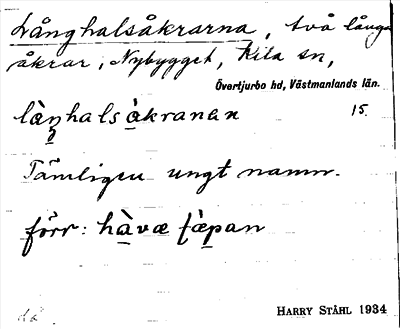 Långhalsåkrarna, två långa
åkrar, Nybygget, Kila sn,
Övertjurbo hd, Västmanlands län.
làŋhals àkranan 15.
Tämligen ungt namn.
förr: hàvæ tæ̀pan
HARRY STÅHL 1934